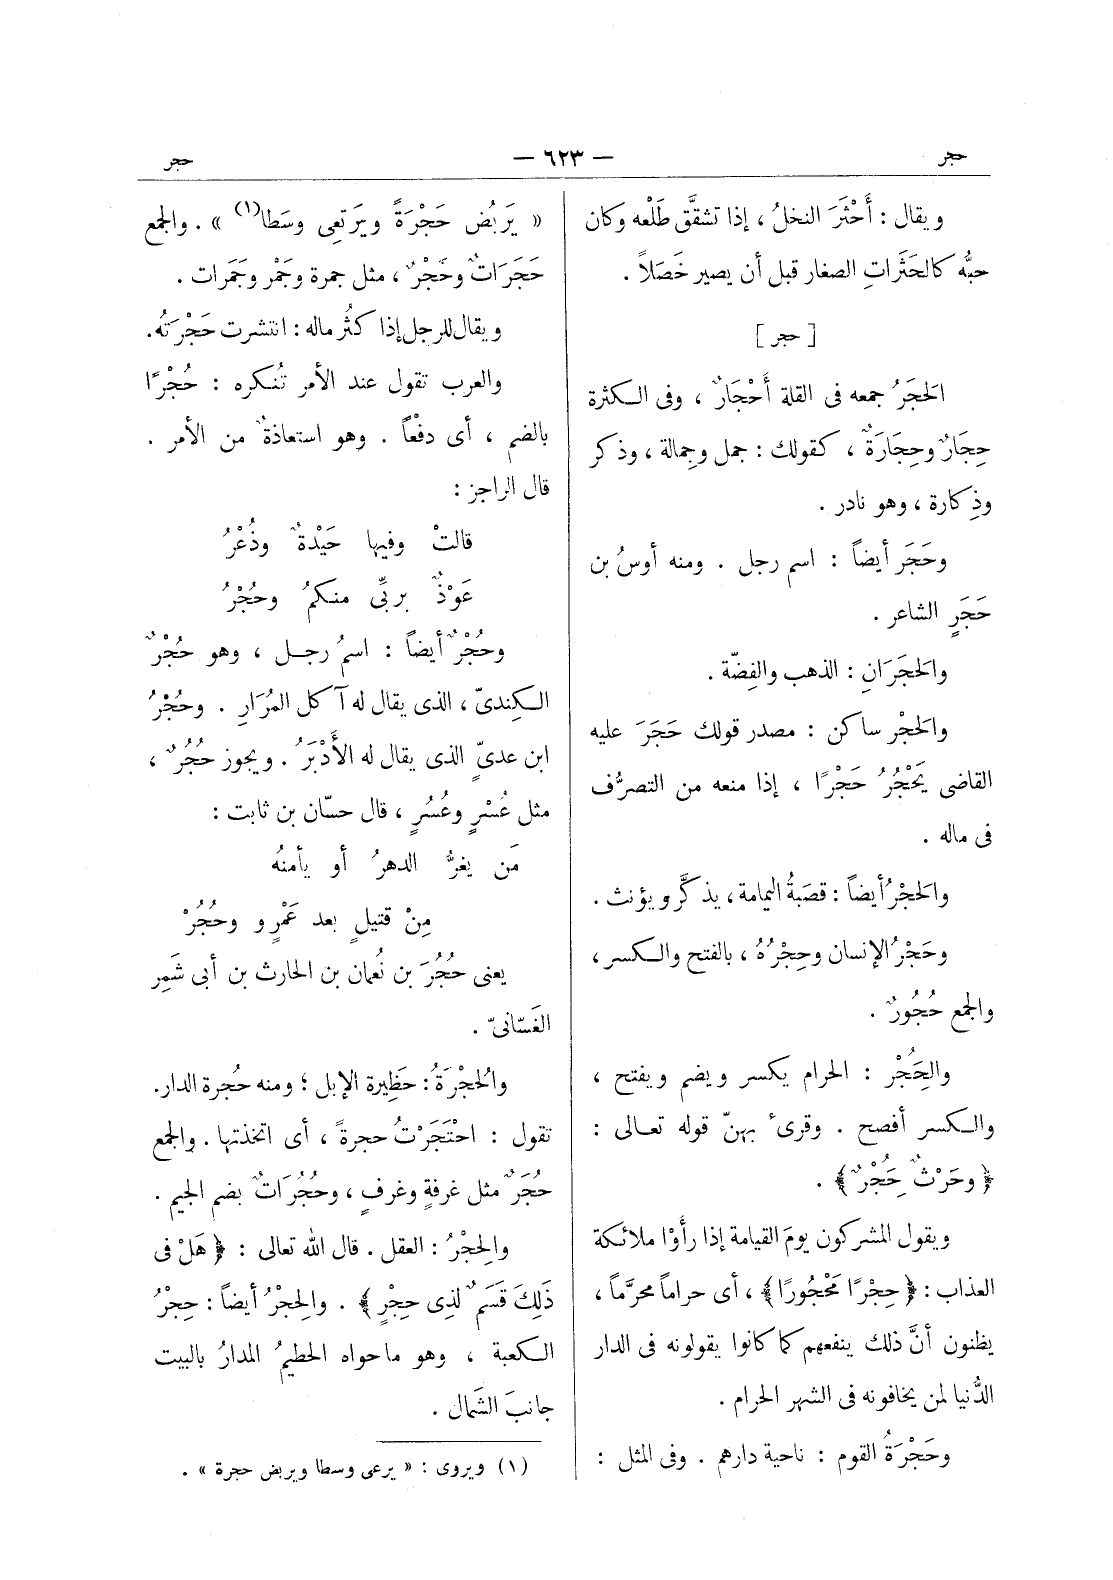 حجر
— ٦٢٣ —
حجر
ويقال : أَحْثَرَ النخلُ ، إذا تشقَّق طَلْعه وكان
حبُّه كالحَثَراتِ الصغار قبل أن يصير حَصَلاً .
[ حجر ]
الحَجَرُ جمعه فى القلة أَحْجَارٌ ، وفى الكثرة
حِجَارٌ وحِجَارَةٌ ، كقولك : جمل وجِمالة ، وذكر
وذِكارة ، وهو نادر .
وحَجَر أيضاً : اسم رجل . ومنه أوسُ بن
حَجَرٍ الشاعر .
والحَجَرَانِ : الذهب والفِضّة .
والحَجْر ساكن : مصدر قولك حَجَرَ عليه
القاضى يَحْجُرُ حَجْرًا ، إذا منعه من التصرُّف
فى ماله .
والحَجْرُ أيضاً : قصَبةُ اليمامة ، يذكَّر ويؤنث .
وحَجْرُ الإنسان وحِجْرُهُ ، بالفتح والكسر ،
والجمع حُجُورٌ .
والحَُِجْر : الحرام يكسر ويضم ويفتح ،
والكسر أفصح . وقرىء بهنّ قوله تعالى :
﴿ وحَرْثٌ حَُِجْرٌ ﴾ .
ويقول المشركون يومَ القيامة إذا رأَوْا ملائكة
العذاب : ﴿ حِجْرًا مَحْجُورًا ﴾ ، أى حراماً محرَّماً ،
يظنون أنَّ ذلك ينفعهم كما كانوا يقولونه فى الدار
الدُّنيا لمن يخافونه فى الشهر الحرام .
وحَجْرَةُ القوم : ناحية دارهم . وفى المثل :
« يَربُض حَجْرَةً ويَرتعِى وسَطا(١) » . والجمع
حَجَرَاتٌ وحَجْرٌ ، مثل جمرة وجَمْر وجَمَرات .
ويقال للرجل إذا كثُر ماله : انتشرت حَجْرَتُه .
والعرب تقول عند الأمر تُنكره : حُجْرًا
بالضم ، أى دفْعاً . وهو استعاذةٌ من الأمر .
قال الراجز :
قالتْ وفيها حَيْدةٌ وذُعْرُ
عَوْذٌ بربِّى منكمُ وحُجْرُ
وحُجْرٌ أيضاً : اسمُ رجل ، وهو حُجْرٌ
الكِندىّ ، الذى يقال له آكل المُرَارِ . وحُجْرُ
ابن عدىٍّ الذى يقال له الأَدْبَرُ . ويجوز حُجُرٌ ،
مثل عُسْرٍ وعُسُرٍ ، قال حسّان بن ثابت :
مَن يغرُّ الدهرُ أو يأمنهُ
مِنْ قتيلٍ بعد عَمْرٍو وحُجُرْ
يعنى حُجُرَ بن نُعمان بن الحارث بن أبى شَمِر
الغَسّانىّ .
والحُجْرَةُ : حَظِيرة الإبل ؛ ومنه حُجرة الدار.
تقول : احْتَجَرْتُ حجرةً ، أى اتخذتها . والجمع
حُجَرٌ مثل غرفةٍ وغرفٍ ، وحُجُرَاتٌ بضم الجيم .
والحِجْرُ : العقل . قال الله تعالى : ﴿ هَلْ فى
ذَلِكَ قَسَمٌ لذِى حِجْرٍ ﴾ . والحِجْرُ أيضاً : حِجْرُ
الكعبة ، وهو ماحواه الحطيمُ المدارُ بالبيت
جانبَ الشَمال .
(١) ويروى : « يرعى وسطا ويربض حجرة » .